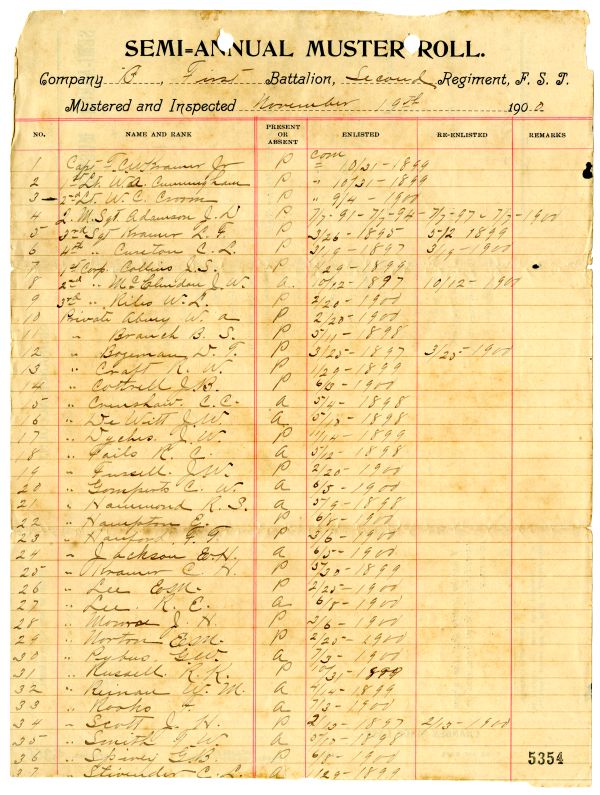 SEMI-ANNUAL MUSTER ROLL.
Company B, First Battalion, Second Regiment, F. S. T.
Mustered and Inspected November 19th 1900
NO. NAME AND RANK PRESENT OR ABSENT ENLISTED RE-ENLISTED REMARKS
1 Capt F. C. W. Kramer Jr P com 10/31-1899
2 1st Lt. W. A. Cunningham P " 10/31-1899
3 2nd Lt. W. C. Croom P " 9/4-1900
4 Q. M. Sgt Adamson J. D P 7/7-91-7/7-94- 7/7-97- 7/7-1900
5 3rd Sgt Kramer L. F. P 3/26-1895 5/2 1899
6 4th " Cureton C. L. P 3/9-1897 3/9-1900
7 1st Corp. Collins J. S. P 1/29-1899
8 2nd " J. W. a. 10/12-1897 10/12-1900
9 3rd " Riles W. L. P 2/20-1900
10 Private W. a P 2/20-1900
11 " Branch B. S. P 5/11-1898
12 " Bozeman D. F. P 3/25-1897 3/25-1900
13 " Craft R. W. P 1/29-1899
14 " Cottrell J. B. P 1900
15 " Crenshaw C. C. a 5/4-1898
16 " De Witt J. W. a 5/13-1898
17 " Dyches. J. W. P 11/14-1899
18 " Fails R. C. a 5/12-1898
19 " Fussell J. W. P 2/20-1900
20 " C. W. a 6/5-1900
21 " Hammond R. S. a 5/9-1898
22 " Hampton E. P 6/8-1900
23 " Hanford F. F. P 3/6-1900
24 " Jackson E. H. a 6/5-1900
25 " Kramer C. H. P 5/30-1899
26 " Lee E. M. P 2/25-1900
27 " Lee. R. E. a 6/8-1900
28 " J. H. P 3/6-1900
29 " Norton E. M. P 2/25-1900
30 " Pybus G. W. a 7/3-1900
31 " Russell R. K. P 10/31-1899
32 " W. M. a 4/14-1899
33 " Rooks a 7/3-1900
34 " Scott J. H. P 2/13-1897 2/13-1900
35 " Smith F. W. a 5/17-1898
36 " G. B. P 6/8-1900
37 " Stivender C. L. a 1/29-1899
5354